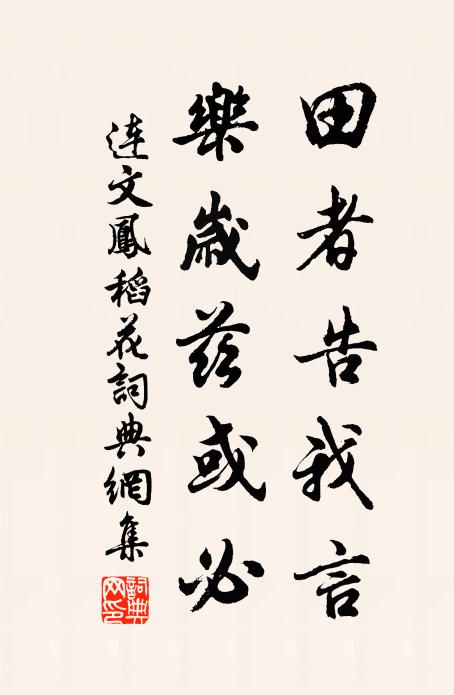 田者告我言
樂歲茲或必
連文鳳稻花詞典網集
詞典網印